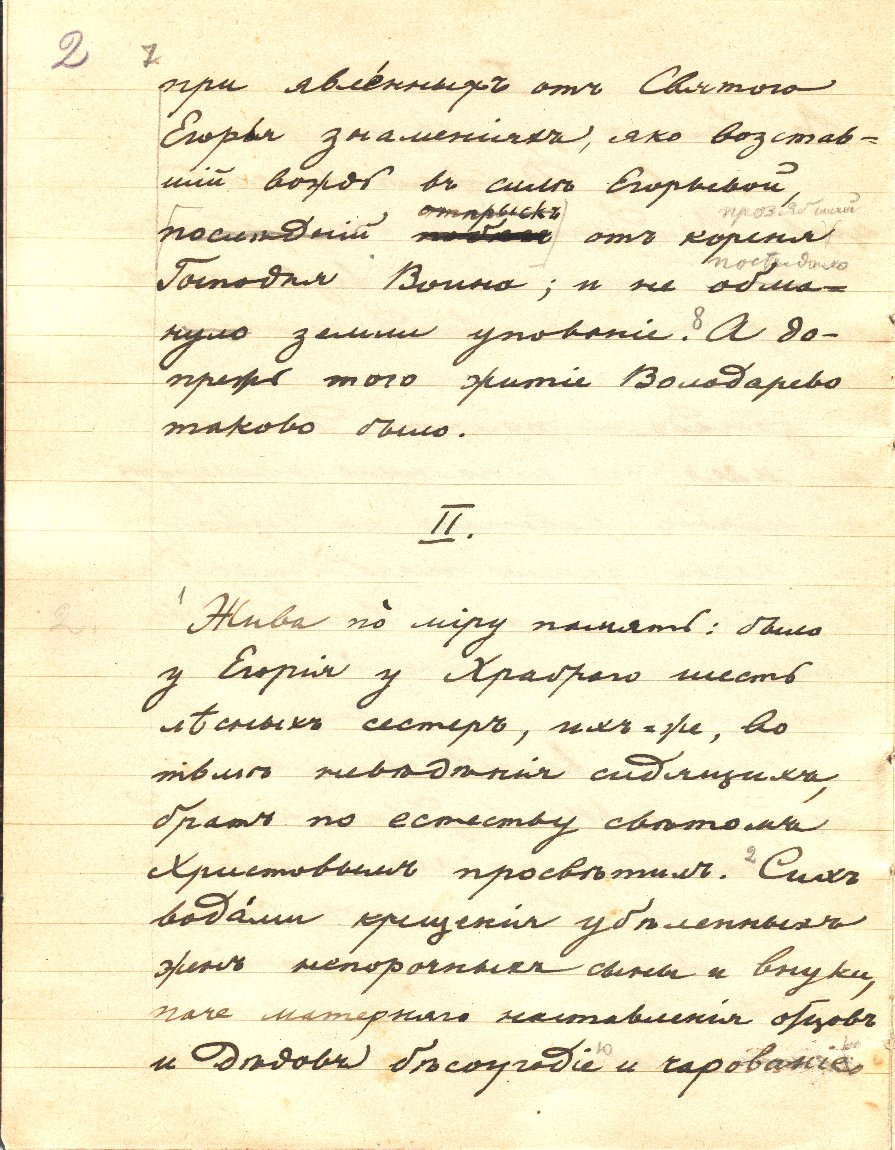 2 7
при явле́нныхъ отъ Святого
Егорья знаменіяхъ, яко возстав=
шій вождь въ силѣ Егорьевой,
отпрыскъ прозябшій
послѣдній отъ кореня
постыдило
Господня Воина; и не обма=
нуло земли упованіе. 8 А до-
прежь того житіе Володарево
таково было.
II.
1 Жива по міру память: было
2.
у Егорія у Храбраго шесть
лѣсныхъ сестеръ, ихъ=же, во
тьмѣ невѣдѣнія сидящихъ,
братъ по естеству свѣтомъ
Христовымъ просвѣтилъ. 2 Сихъ
вода́ми крещенія убѣленныхъ
женъ непорочныхъ сыны и внуки,
паче матерняго наставленія отцовъ
и дѣдовъ бѣсоугодіе и чарованіе